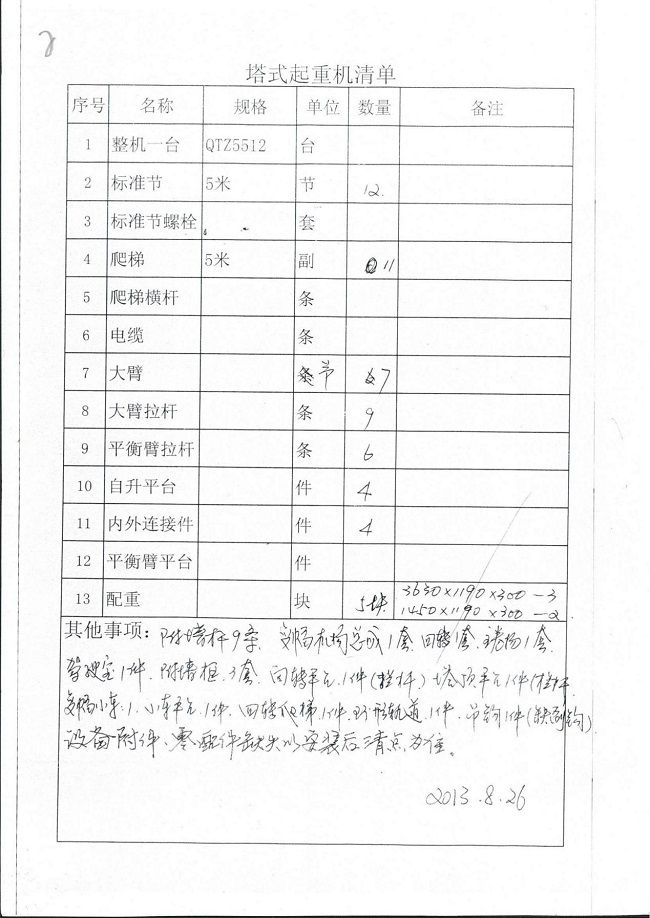 2
塔式起重机清单
序号 名称 规格 单位 数量 备注
1 整机一台 QTZ5512 台
2 标准节 5米 节 12
3 标准节螺栓 套
4 爬梯 5米 副 11
5 爬梯横杆 条
6 电缆 条
7 大臂 节 7
8 大臂拉杆 条 9
9 平衡臂拉杆 条 6
10 自升平台 件 4
11 内外连接件 件 4
12 平衡臂平台 件
13 配重 块 5块 3630×1190×300—3
1450×1190×300—2
其他事项：附墙杆9条、机构总成1套、回转1套、1套、
驾驶室1件、附墙框3套、平元1件(栏杆)、塔顶平元1件(栏杆
小车:1、小车平元1件、回转爬梯1件、轨道1件、吊钩1件(缺副钩)
设备附件、零配件缺失以安装后清点为住。
2013.8.26